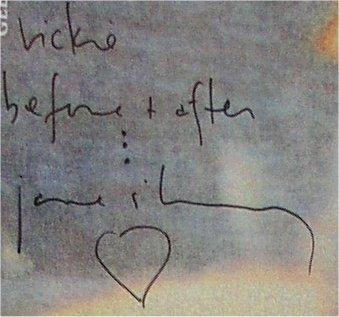 vickie
before + after
:
jane